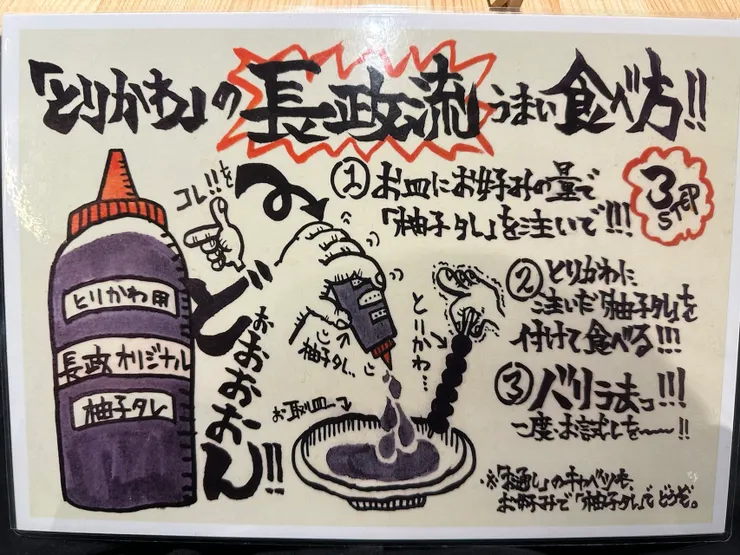 「とりかわ」の長政流うまい食べ方!!
3
STEP
①お皿にお好みの量で
「柚子タレ」を注いで!!!
コレ!!を
どぉおおおん!!
とりかわ用
長政オリジナル
柚子タレ
柚子タレ...
とりかわ...
お取皿...
②とりかわに
注いだ「柚子タレ」を
付けて食べる!!!
③バリうまっ!!!
一度お試しを〜〜!!
※「お通し」のキャベツも、
お好みで「柚子タレ」でどうぞ。